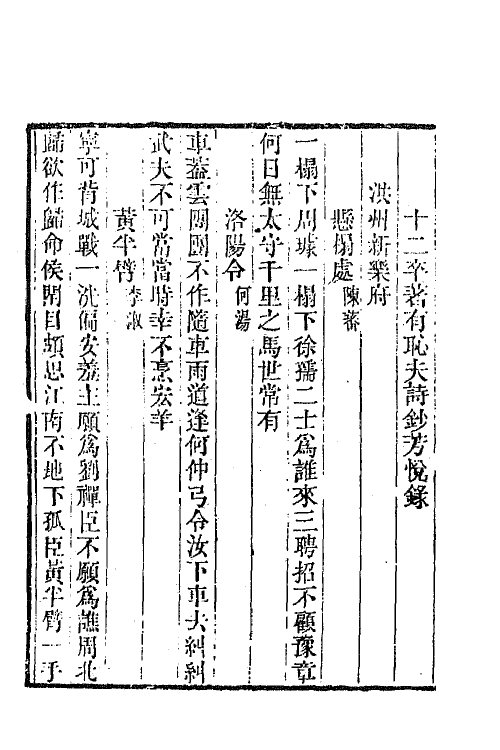 十二卒著有恥夫詩鈔芳悅錄
洪州新樂府
懸榻處陳蕃
一榻下周璩一榻下徐孺二士爲誰來三聘招不顧豫章
何日無太守千里之馬世常有
洛陽令何湯
車蓋雲團團不作隨車雨道逢何仲弓令汝下車去糾糾
武夫不可當當時幸不烹宏羊
黃半臂李淑
寧可背城戰一洗偏安羞主願爲劉禪臣不願爲譙周北
歸欲作歸命侯開目頗思江南不地下孤臣黃半臂一手